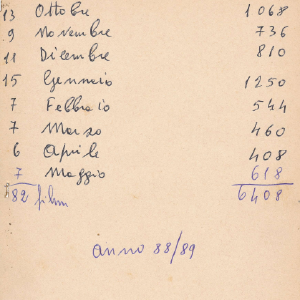 13 Ottobre 1068
9 Novembre 736
11 Dicembre 810
15 Gennaio 1250
7 Febbraio 544
7 Marzo 460
6 Aprile 408
7 Maggio 618
82 films 6408
anno 88/89